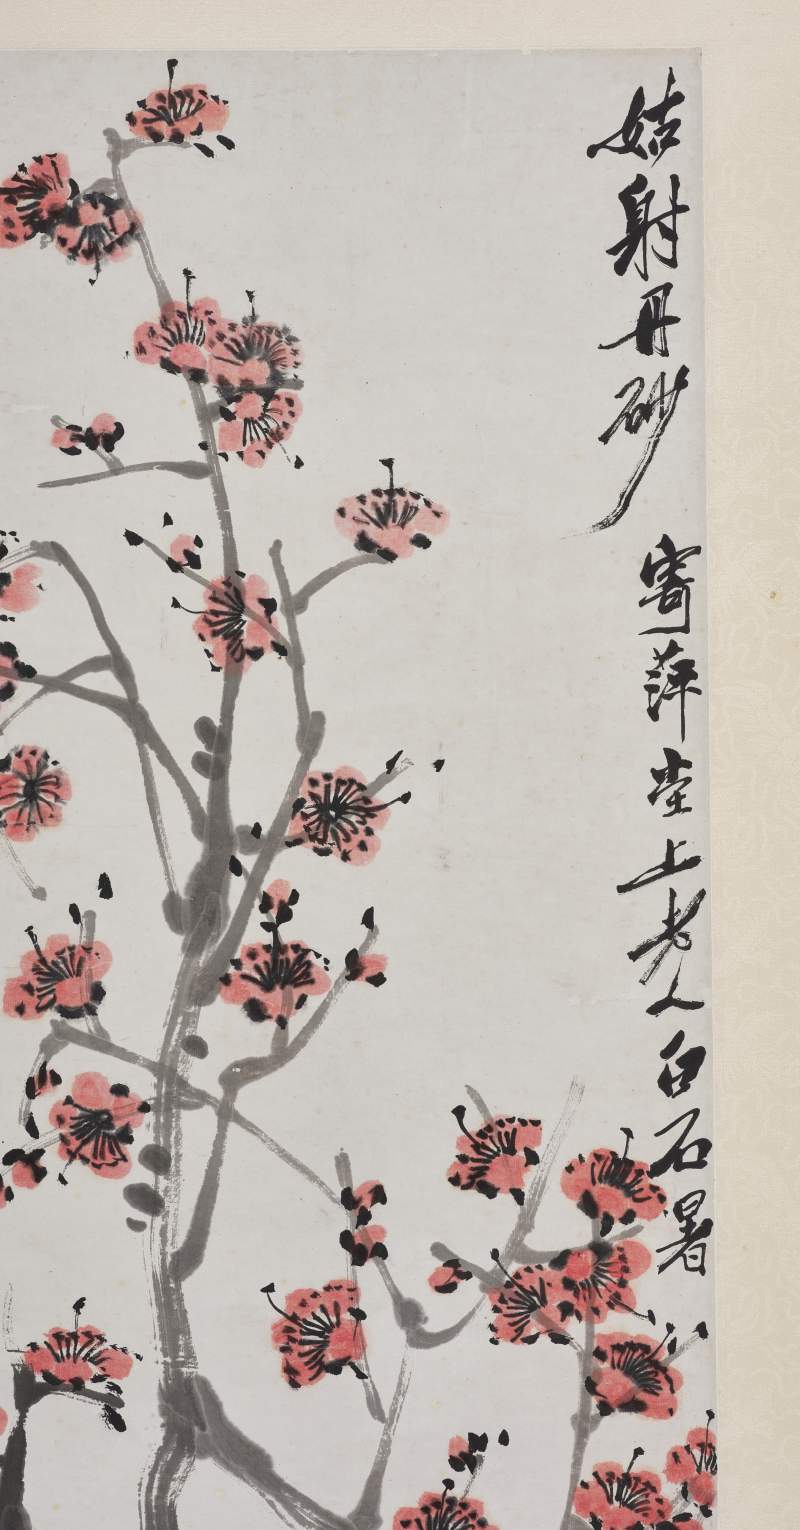 姑射丹砂 寄萍堂上老人白石暑